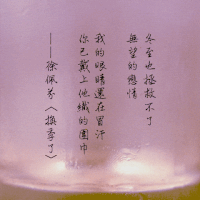 冬至也拯救不了
無望的戀情
我的眼睛還在冒汗
你已戴上他織的圍巾
——徐佩芬〈換季了〉